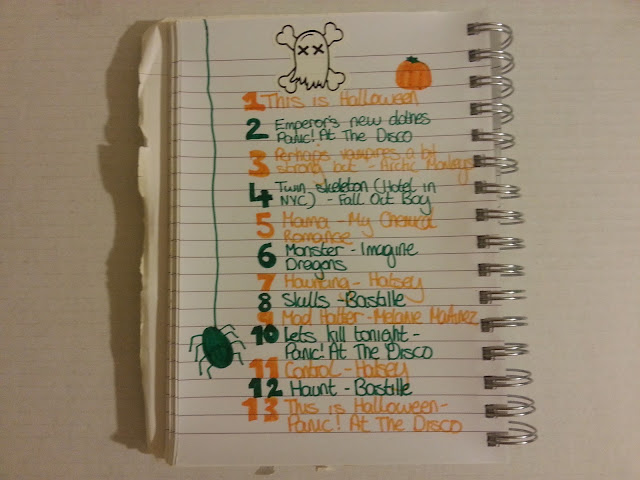 1 This is Halloween
2 Emperor's new clothes
Panic! At The Disco
3 Perhaps vampires a bit
strong but - Arctic Monkeys
4 Twin skeleton (Hotel in
NYC) - Fall Out Boy
5 Mama - My Chemical
Romance
6 Monster - Imagine
Dragons
7 Haunting - Halsey
8 Skulls - Bastille
9 Mad Hatter - Melanie Martinez
10 Lets kill tonight -
Panic! At The Disco
11 Control - Halsey
12 Haunt - Bastille
13 This is Halloween -
Panic! At The Disco